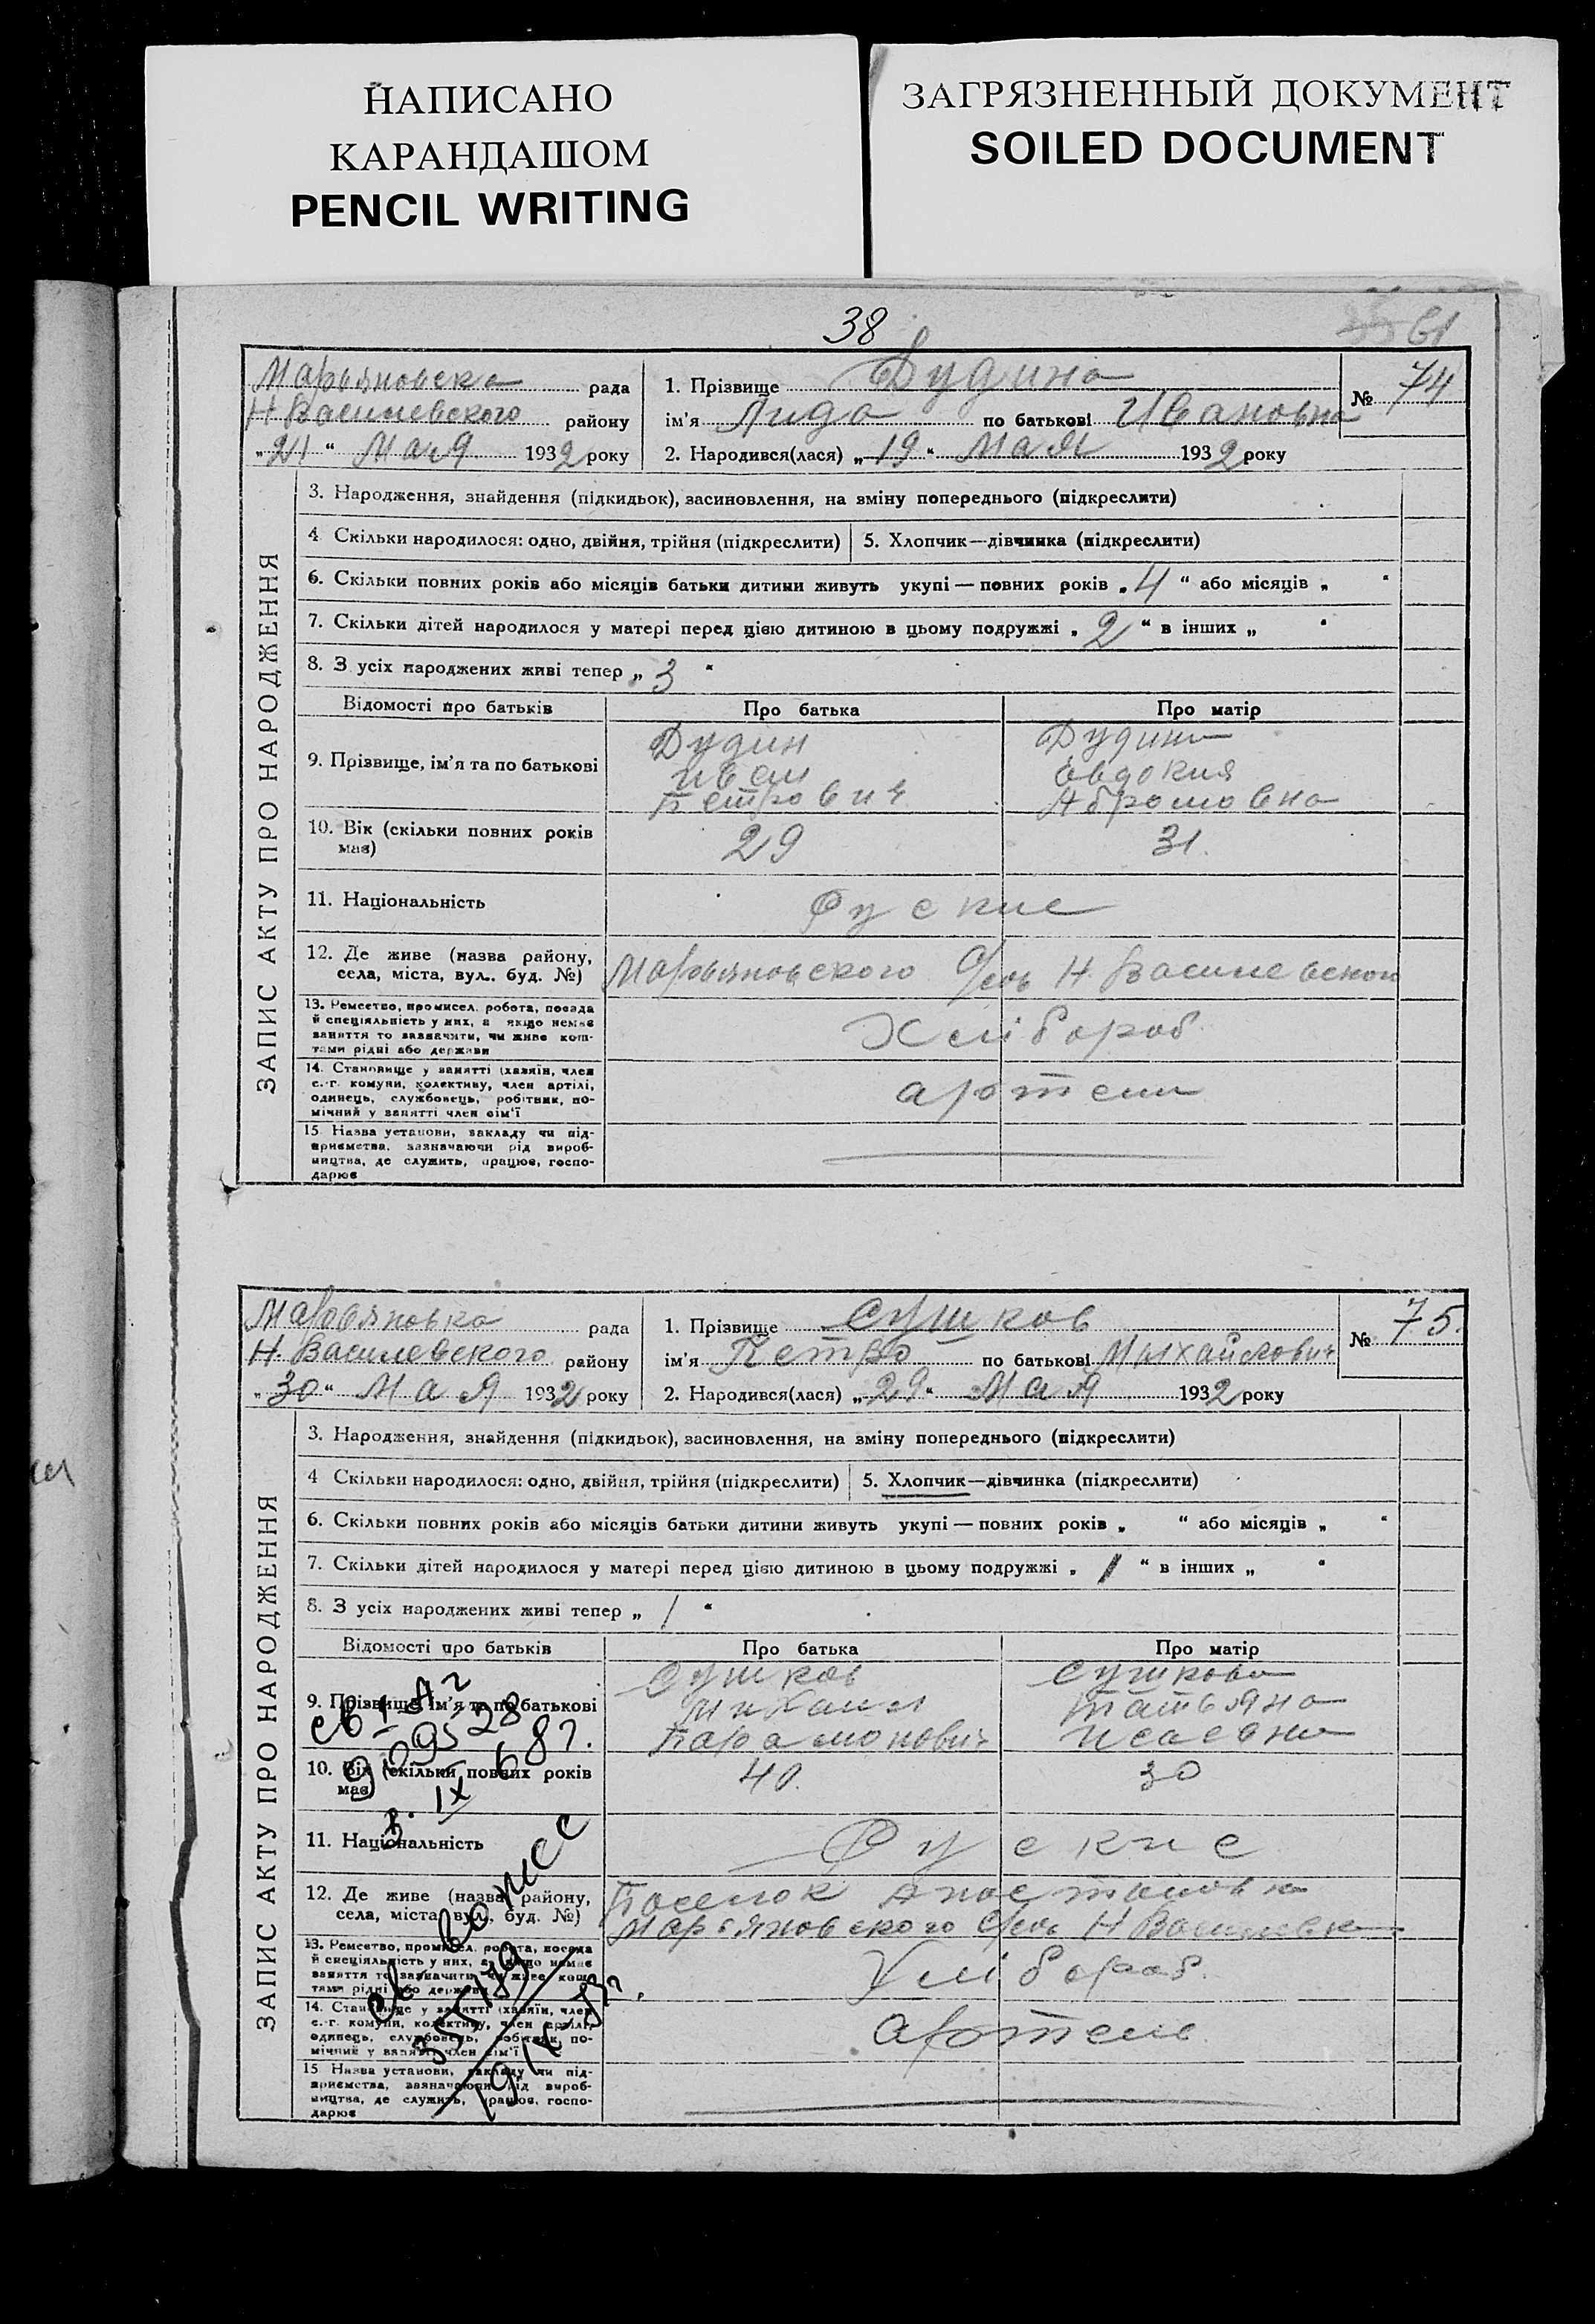 НАПИСАНО
КАРАНДАШОМ
PENCIL WRITING
ЗАГРЯЗНЕННЫЙ ДОКУМЕНТ
SOILED DOCUMENT
38
61
Марьяновска рада
Н Василевского району
„21“ Мая 1932 року
1. Прізвище Дудина
ім'я Лида по батькові Ивановна
2. Народився(лася) „19“ Мая 1932 року
№ 74
ЗАПИС АКТУ ПРО НАРОДЖЕННЯ
3. Народження, знайдення (підкидьок), засиновлення, на зміну попереднього (підкреслити)
4 Скільки народилося: одно, двійня, трійня (підкреслити)
5. Хлопчик—дівчинка (підкреслити)
6. Скільки повних років або місяців батьки дитини живуть укупі — повних років „4“ або місяців „ “
7. Скільки дітей народилося у матері перед цією дитиною в цьому подружжі „2“ в інших „ “
8. З усіх народжених живі тепер „3“
Відомості про батьків Про батька Про матір
9. Прізвище, ім'я та по батькові
Дудин
Иван
Петрович
Дудина
Евдокия
Абрамовна
10. Вік (скільки повних років має)
29
31.
11. Національність
Руские
12. Де живе (назва району,
села, міста, вул.. буд. №)
Марьяновского Н. Василевског
13. Ремество, промисел, робота, посада
й спеціяльність у них, а якщо немає
заняття то зазначити, чи живе кош-
тами рідні або держави
Хлібороб
14. Становище у занятті (хазяїн, член
с.-г. комуни, колективу, член артілі,
одинець, службовець, робітник, по-
мічний у занятті член сім'ї
артели
15 Назва установи, закладу чи під-
приємства, зазначаючи рід вироб-
ництва, де служить, працює, госпо-
дарює
Марьяновка рада
Н. Василевского району
„30“ Мая 1932 року
1. Прізвище Сушков
ім'я Петро по батькові Михайлович
2. Народився(лася) „29“ Мая 1932 року
№ 75.
ЗАПИС АКТУ ПРО НАРОДЖЕННЯ
3. Народження, знайдення (підкидьок), засиновлення, на зміну попереднього (підкреслити)
4 Скільки народилося: одно, двійня, трійня (підкреслити)
5. Хлопчик—дівчинка (підкреслити)
6. Скільки повних років або місяців батьки дитини живуть укупі — повних років „ “ або місяців „ “
7. Скільки дітей народилося у матері перед цією дитиною в цьому подружжі „1“ в інших „ “
8. З усіх народжених живі тепер „1“
Відомості про батьків Про батька Про матір
9. Прізвище, ім'я та по батькові
Сушков
Михаил
Парамонович
Сушкова
Татьяна
Исаевна
10. Вік (скільки повних років має)
40.
30
11. Національність
Руские
12. Де живе (назва району,
села, міста, вул., буд. №)
Поселок
Марьяновского Н Василевск
13. Ремество, промисел, робота, посада
й спеціяльність у них, а якщо немає
заняття то зазначити, чи живе кош-
тами рідні або держави
Хлібороб.
14. Становище у занятті (хазяїн, член
с.-г. комуни, колективу, член артілі,
одинець, службовець, робітник, по-
мічний у занятті член сім'ї
Артели
15 Назва установи, закладу чи під-
приємства, зазначаючи рід вироб-
ництва, де служить, працює, госпо-
дарює